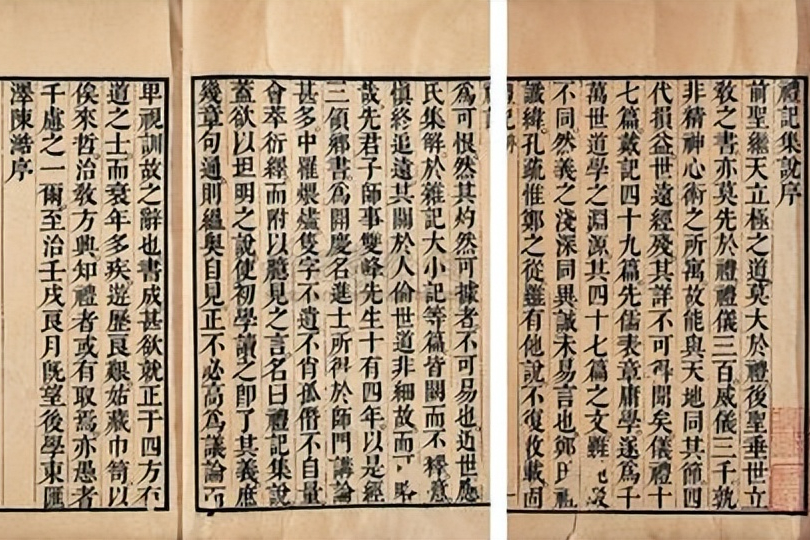 禮記集說序
前聖繼天立極之道莫大於禮後聖垂世立
敎之書亦莫先於禮禮儀三百威儀三千孰
非精神心術之所寓故能與天地同其節四
代損益世遠經殘其詳不可得聞矣儀禮十
七篇戴記四十九篇先儒表章庸學遂爲千
萬世道學之淵源其四十七篇之文雖
不同然義之淺深同異誠未易言也鄭氏祖
讖緯孔疏惟鄭之從雖有他說不復收載固
爲可恨然其灼然可據者不可易也近世應
氏集解於雜記大小記等篇皆闕而不釋意
愼終追遠其關於人倫世道非細故而可略
哉先君子師事雙峰先生十有四年以是經
三領鄉書爲開慶名進士所得於師門講論
甚多中罹煨燼隻字不遺不肖孤僭不自量
會萃衍繹而附以臆見之言名曰禮記集說
蓋欲以坦明之說使初學讀之卽了其義庶
幾章句通則緼奧自見正不必高爲議論而
卑視訓故之辭也書成甚欲就正于四方有
道之士而衰年多疾遊歷良艱姑藏巾笥以
俟來哲治敎方興知禮者或有取焉亦愚者
千慮之一爾至治壬戌良月旣望後學東匯
澤陳澔序